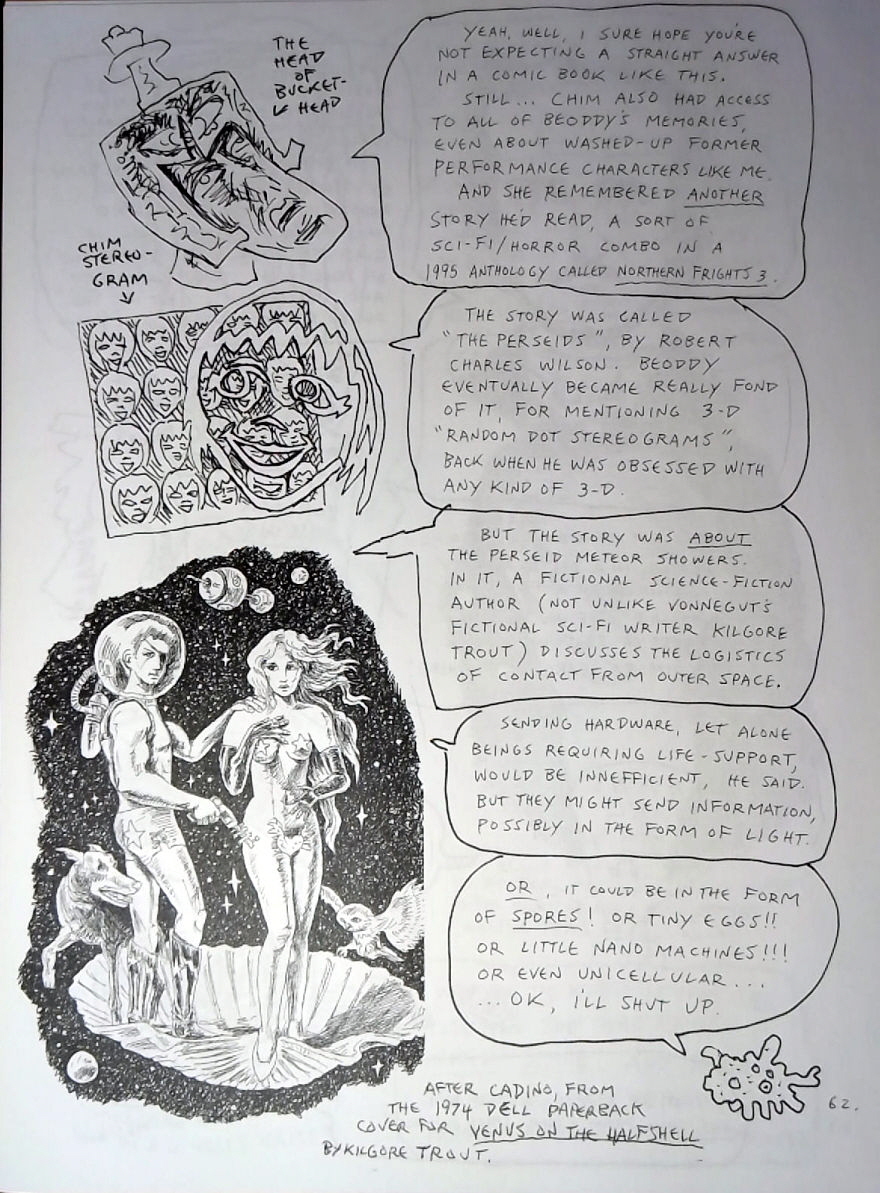 THE
HEAD
OF
BUCKET-
HEAD
YEAH, WELL, I SURE HOPE YOU'RE
NOT EXPECTING A STRAIGHT ANSWER
IN A COMIC BOOK LIKE THIS.
STILL... CHIM ALSO HAD ACCESS
TO ALL OF BEODDY'S MEMORIES,
EVEN ABOUT WASHED-UP FORMER
PERFORMANCE CHARACTERS LIKE ME.
AND SHE REMEMBERED ANOTHER
STORY HE'D READ, A SORT OF
SCI-FI/HORROR COMBO IN A
1995 ANTHOLOGY CALLED NORTHERN FRIGHTS 3.
CHIM
STEREO-
GRAM
THE STORY WAS CALLED
"THE PERSEIDS", BY ROBERT
CHARLES WILSON. BEODDY
EVENTUALLY BECAME REALLY FOND
OF IT, FOR MENTIONING 3-D
"RANDOM DOT STEREOGRAMS",
BACK WHEN HE WAS OBSESSED WITH
ANY KIND OF 3-D.
BUT THE STORY WAS ABOUT
THE PERSEID METEOR SHOWERS.
IN IT, A FICTIONAL SCIENCE-FICTION
AUTHOR (NOT UNLIKE VONNEGUT'S
FICTIONAL SCI-FI WRITER KILGORE
TROUT) DISCUSSES THE LOGISTICS
OF CONTACT FROM OUTER SPACE.
SENDING HARDWARE, LET ALONE
BEINGS REQUIRING LIFE-SUPPORT,
WOULD BE INNEFFICIENT, HE SAID.
BUT THEY MIGHT SEND INFORMATION,
POSSIBLY IN THE FORM OF LIGHT.
OR, IT COULD BE IN THE FORM
OF SPORES! OR TINY EGGS!!
OR LITTLE NANO MACHINES!!!
OR EVEN UNICELLULAR...
...OK, I'LL SHUT UP.
AFTER CADINO, FROM
THE 1974 DELL PAPERBACK
COVER FOR VENUS ON THE HALFSHELL
BY KILGORE TROUT.
62.